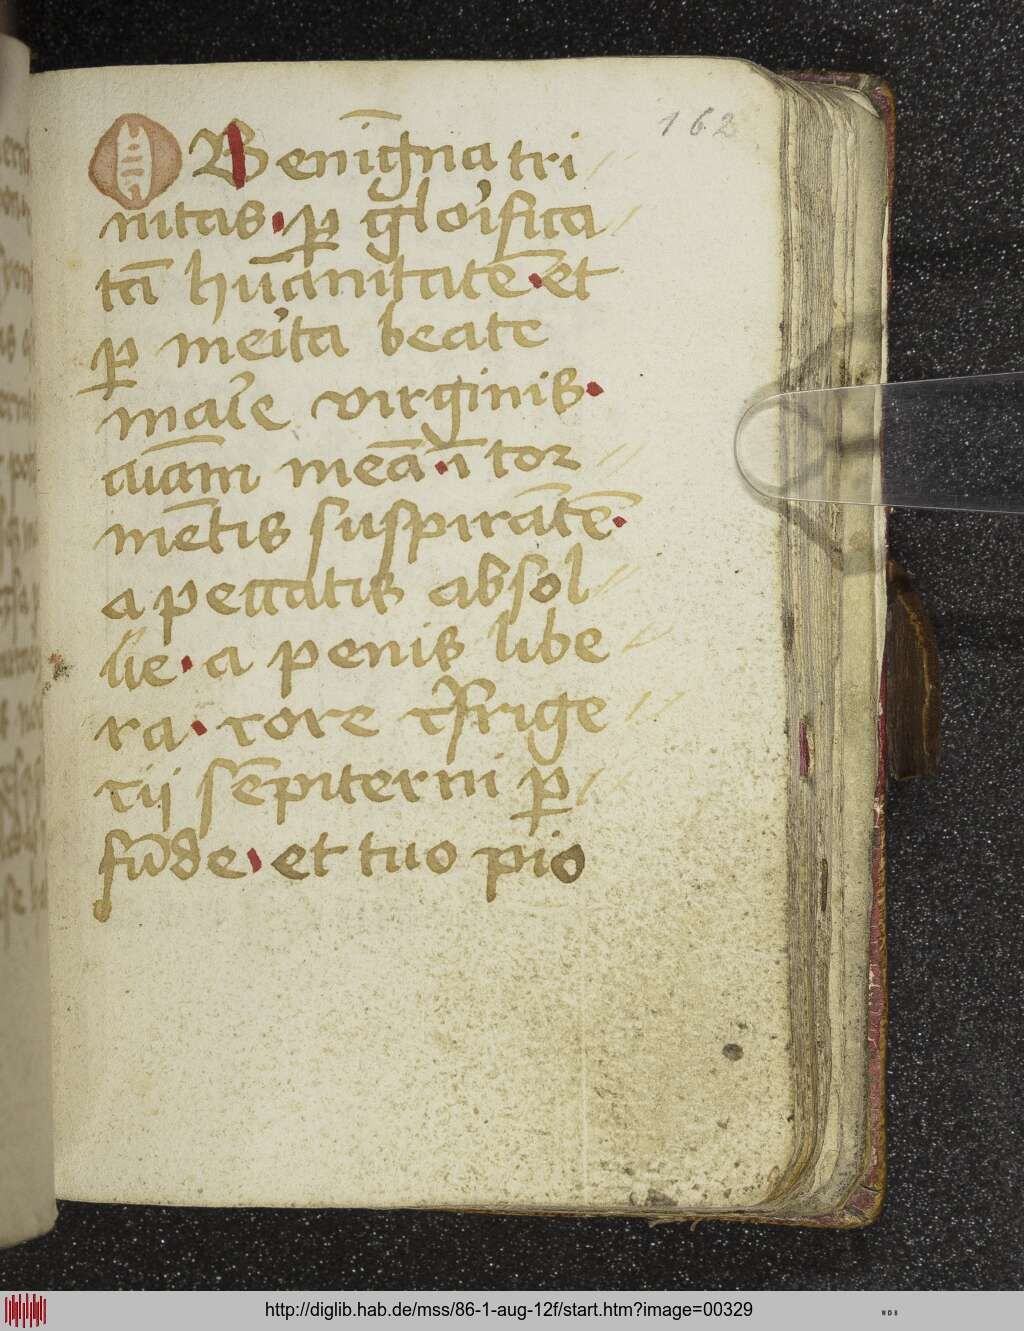 162
O Benīgna tri
nitas · ꝑ gloi͛fica
tā hūānitatē · et
ꝑ mei͛ta beate
maͥe virginis ·
aīam meā · ī tor
mētis suspirātē ·
a peccatis absol
ue · a penis libe
ra · rore refrige
rij sēpiterni ꝑ
fūde · et tuo pio
http://diglib.hab.de/mss/86-1-aug-12f/start.htm?image=00329